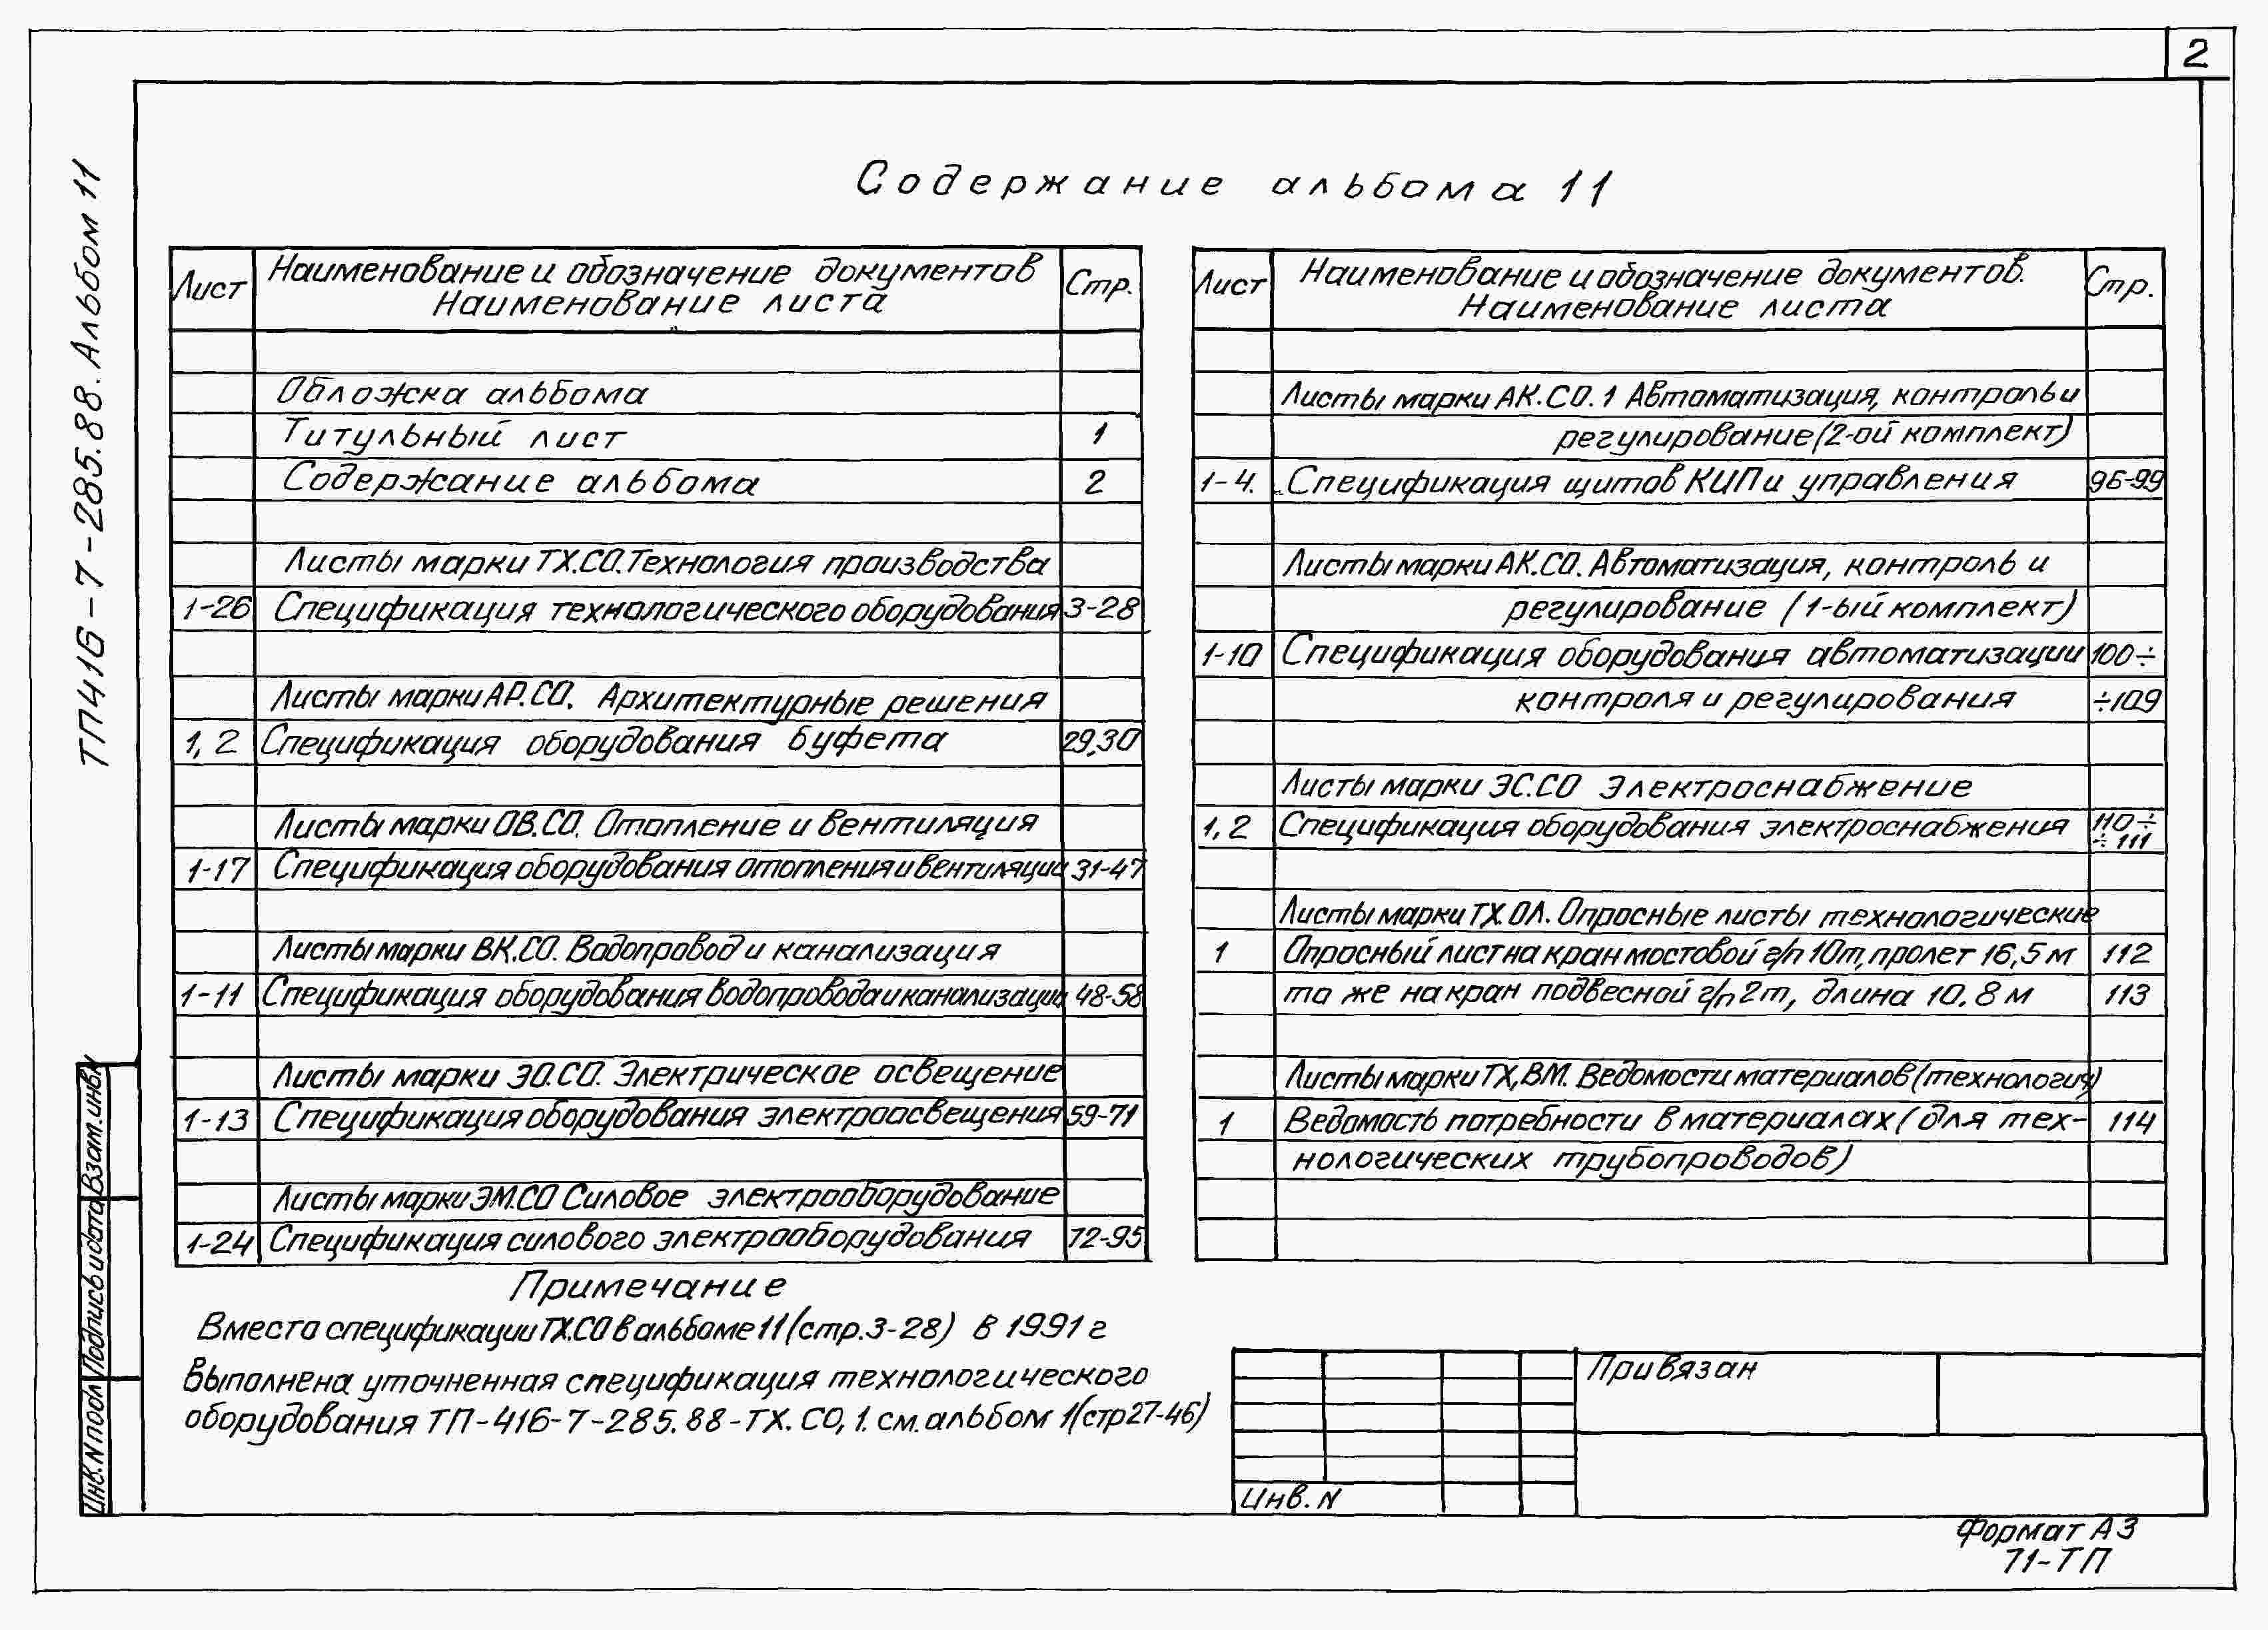 2
ТП416-7-285.88. Альбом 11
Содержание альбома 11
Лист
Наименование и обозначение документов
Наименование листа
Стр.
Обложка альбома
Титульный лист 1
Содержание альбома 2
Листы марки ТХ.СО. Технология производства
1-26 Спецификация технологического оборудования 3-28
Листы марки АР.СО. Архитектурные решения
1, 2 Спецификация оборудования буфета 29,30
Листы марки ОВ.СО. Отопление и вентиляция
1-17 Спецификация оборудования отопления и вентиляции 31-47
Листы марки ВК.СО. Водопровод и канализация
1-11 Спецификация оборудования водопровода и канализации 48-58
Листы марки ЭО.СО. Электрическое освещение
1-13 Спецификация оборудования электроосвещения 59-71
Листы марки ЭМ.СО Силовое электрооборудование
1-24 Спецификация силового электрооборудования 72-95
Лист
Наименование и обозначение документов.
Наименование листа
Стр.
Листы марки АК.СО.1 Автоматизация, контроль и
регулирование (2-ой комплект)
1-4. Спецификация щитов КИП и управления 96-99
Листы марки АК.СО. Автоматизация, контроль и
регулирование (1-ый комплект)
1-10 Спецификация оборудования автоматизации 100÷
контроля и регулирования ÷109
Листы марки ЭС.СО Электроснабжение
1, 2 Спецификация оборудования электроснабжения 110÷
÷111
Листы марки ТХ.ОЛ. Опросные листы технологические
1 Опросный лист на кран мостовой г/п 10т, пролет 16,5 м 112
то же на кран подвесной г/п 2т, длина 10.8 м 113
Листы марки ТХ,ВМ. Ведомости материалов (технология)
1 Ведомость потребности в материалах (для тех- 114
нологических трубопроводов)
Примечание
Вместо спецификации ТХ.СО в альбоме 11 (стр.3-28) в 1991 г
выполнена уточненная спецификация технологического
оборудования ТП-416-7-285.88-ТХ.СО,1. см. альбом 1(стр 27-46)
Взам. инв.N
Подпись и дата
Инв. N подл
Привязан
Инв. N
Формат А3
71-ТП